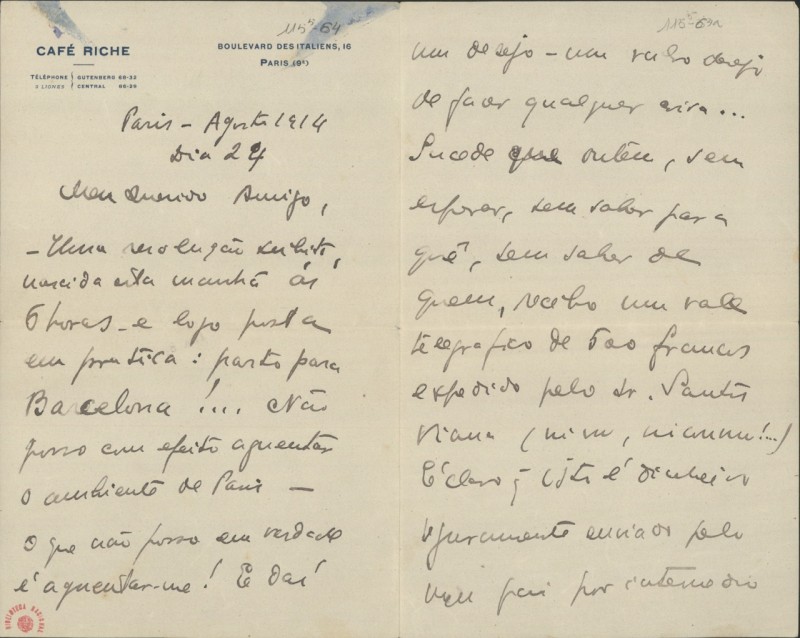 115⁵-64
CAFÉ RICHE
BOULEVARD DES ITALIENS, 16
PARIS (9ᵉ)
TÉLÉPHONE
2 LIGNES
GUTENBERG
CENTRAL
Paris – Agosto 1914
Dia 24
Meu Querido Amigo,
– Uma resolução subita,
nascida esta manhã ás
6 horas – e logo posta
em pratica: parto para
Barcelona!... Não
posso com efeito aguentar
o ambiente de Paris –
O que não posso em verdade
é aguentar-me! E daí
115⁵-64a
um desejo – um rubro desejo
de fazer qualquer coisa...
Sucede que ontem, sem
esperar, sem saber para
quê, sem saber de
quem, recebo um vale
telegrafico de 500 francos
expedido pelo dr.
Viana
É claro q isto é dinheiro
seguramente enviado pelo
meu pai por intermedio
BIBLIOTECA NACIONAL